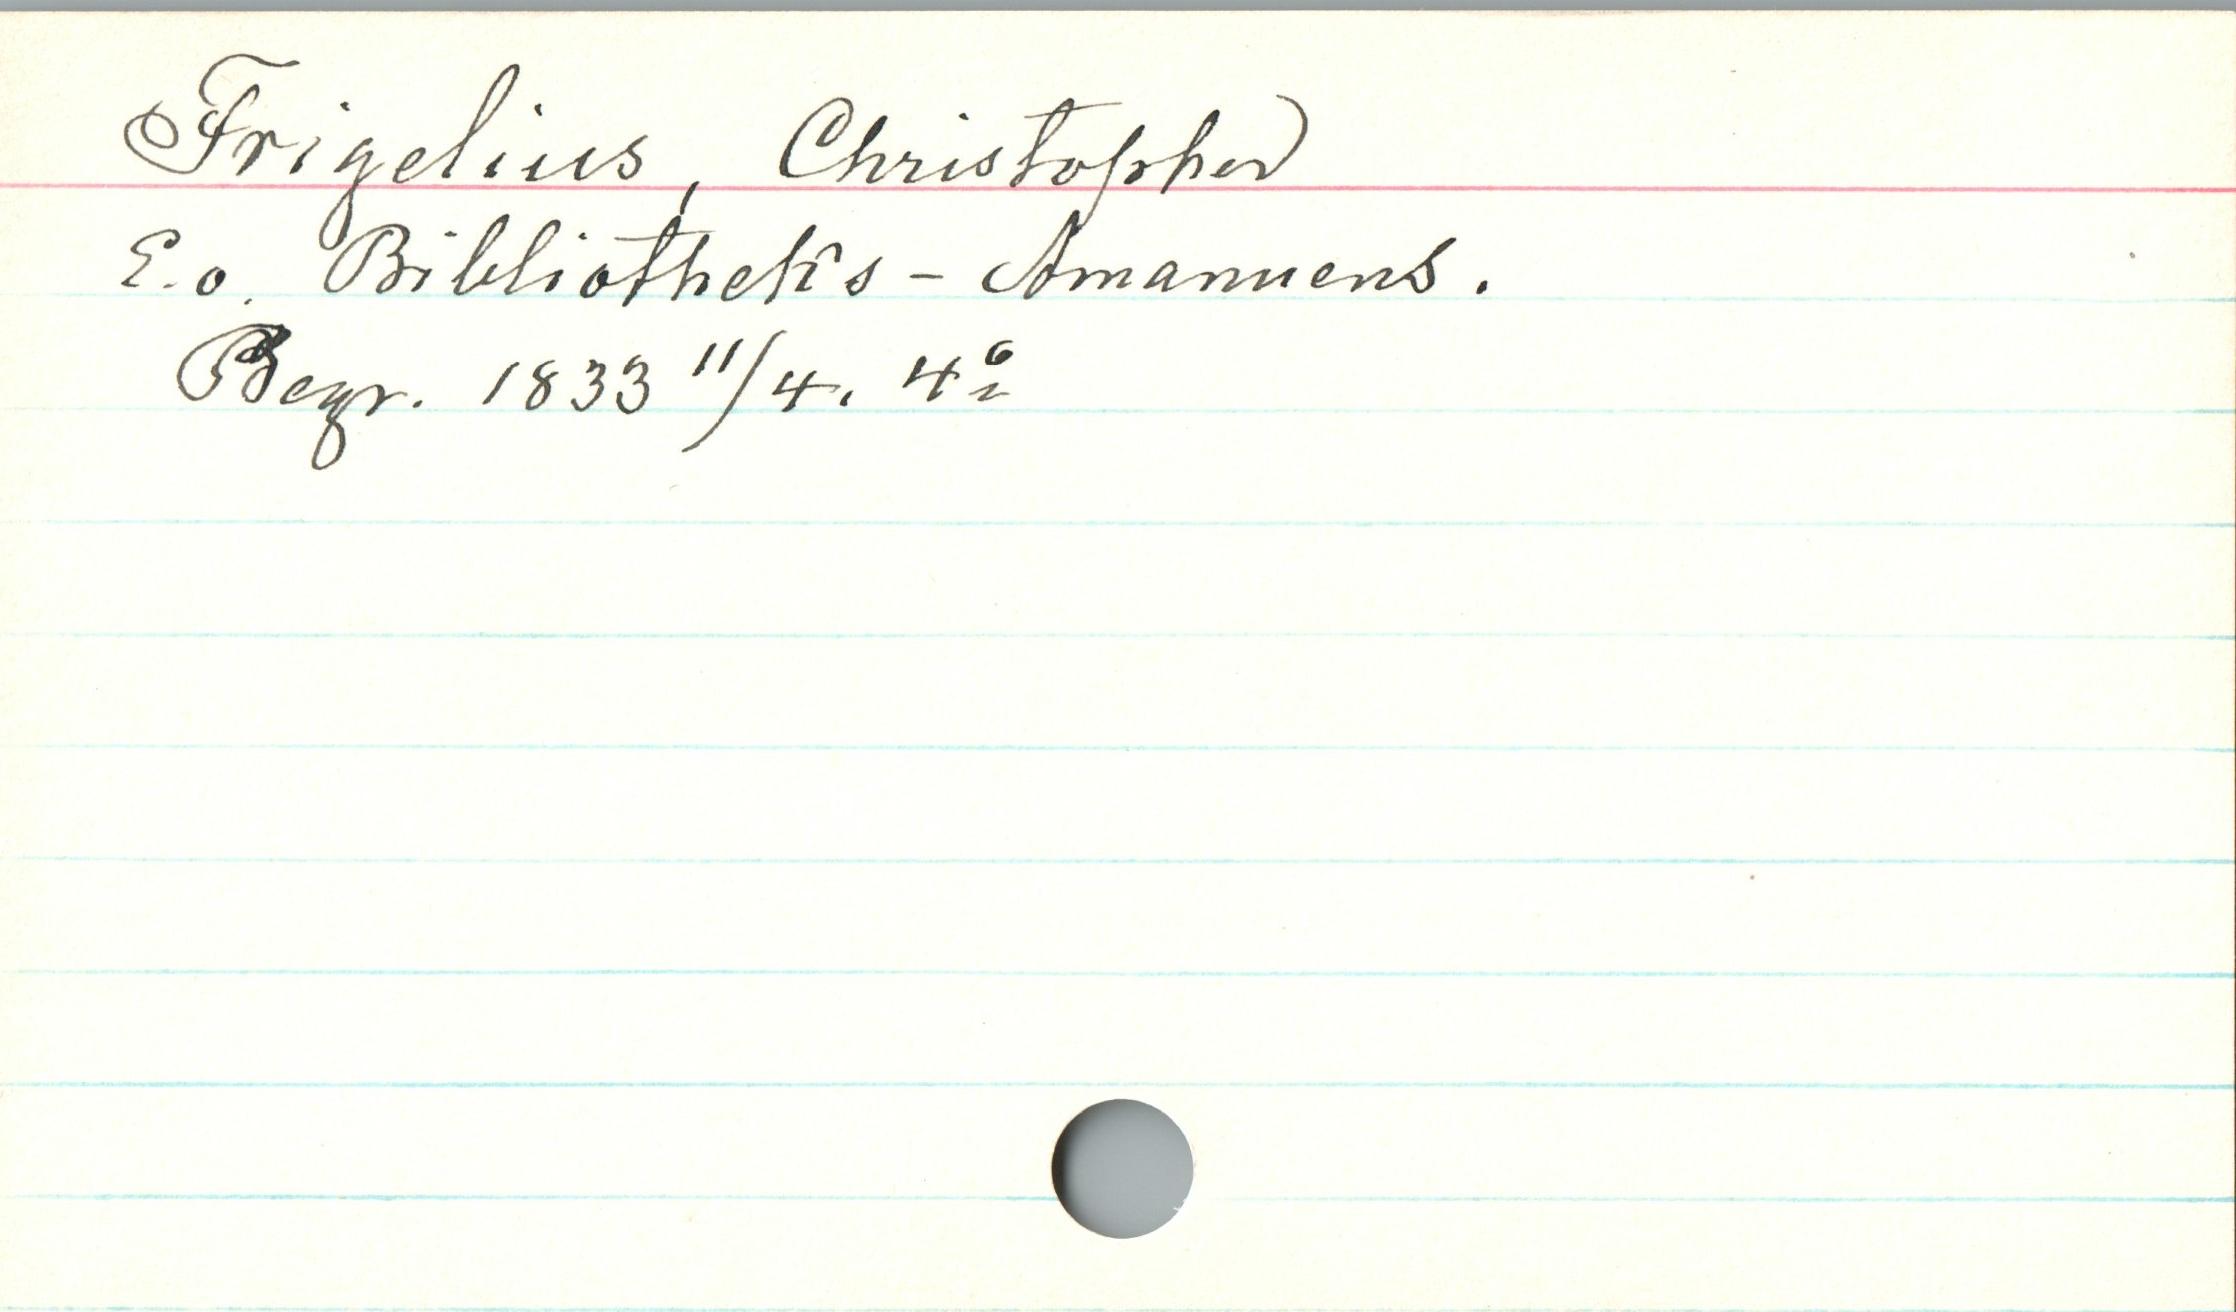 Frigelius, Christopher
E.o. Bibliotheks - Amanuens.
Begr. 1833 11/4. 4º